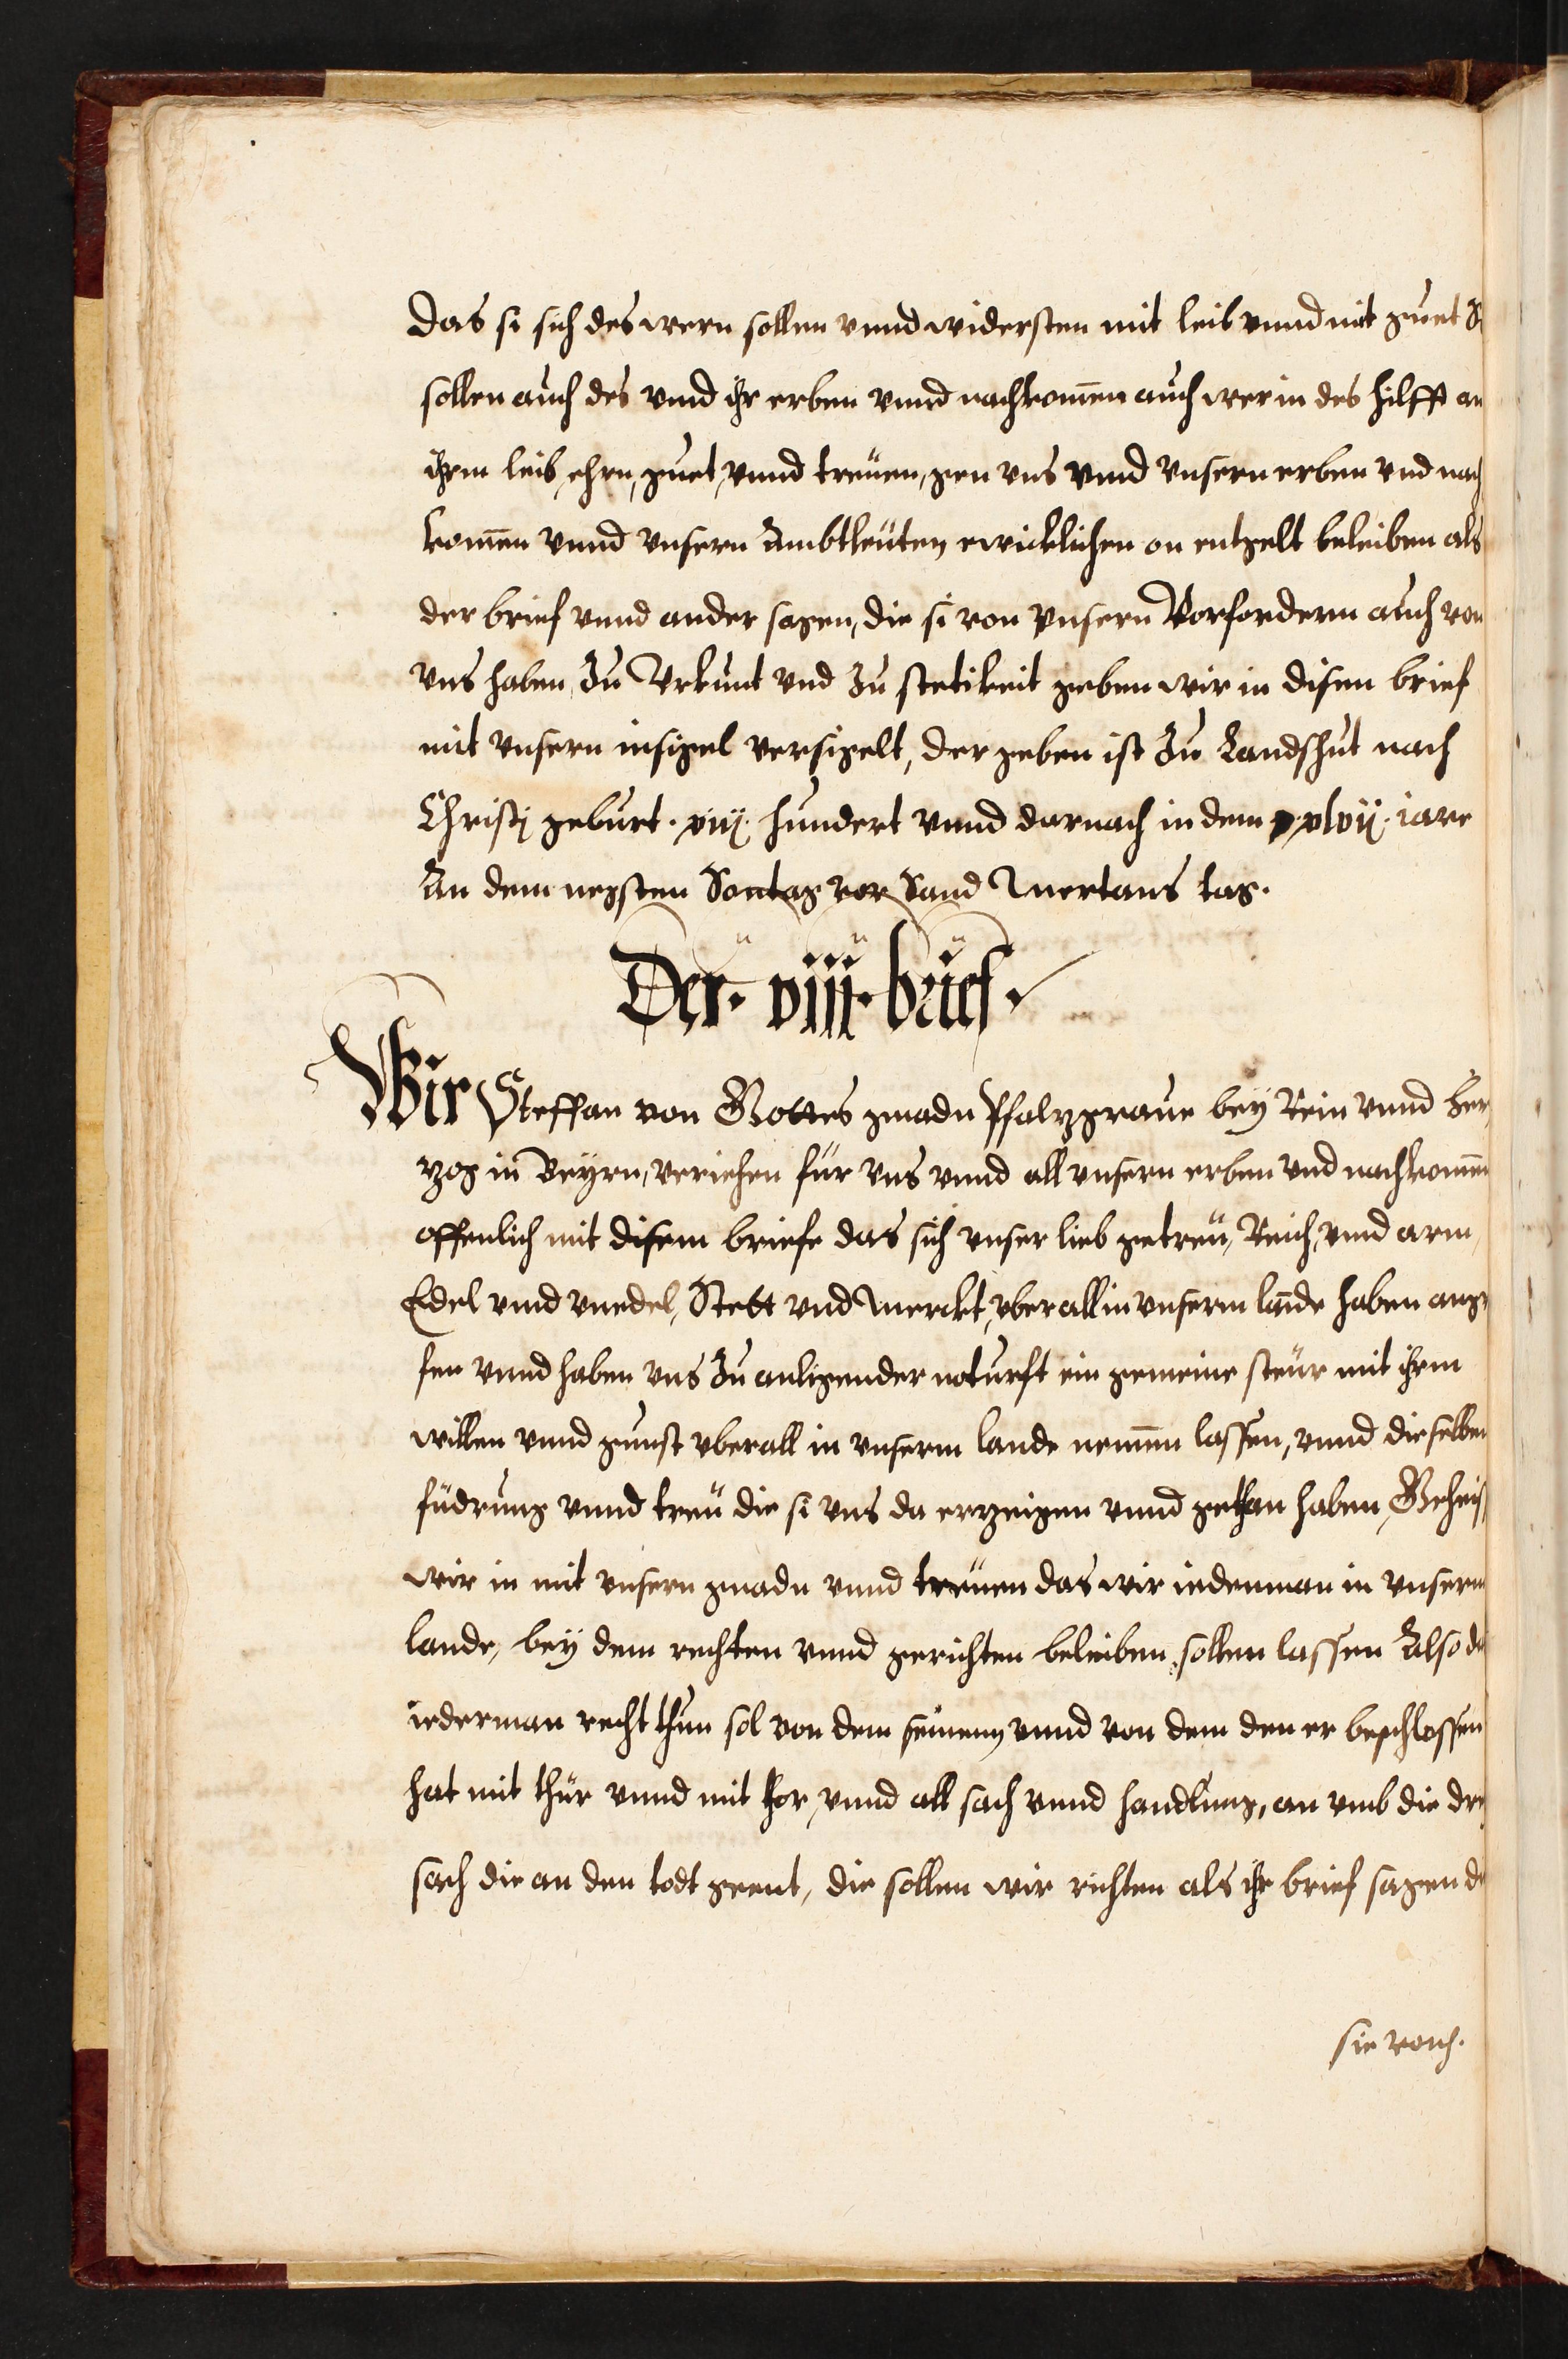 das si sich des wern sollen vnnd widersten mit leib vnnd mit guet S
sollen auch des vnnd ihr erben vnnd nachkom̄en auch wer in des hilfft an
ihrm leib, ehrn, guet, vnnd treüen, gen vns vnnd vnsern erben vnd nach
kom̄en vnnd vnsern Ambtleüten ewicklichen on entgelt beleiben als
der brief vnnd ander sagen, die si von vnsern Vorfordern auch von
vns haben, Zu Vrkunt vnd Zu stetikeit geben wir in disen brief
mit vnsern insigel versigelt, der geben ist Zu Landshut nach
Christj geburt . xiij . hundert vnnd darnach in dem xlvij . iare
An dem negsten Sontag vor Sand Mertans tag .
Der . viii . brief .
Wir Steffan von Gottes gnadn Pfalzgraue bey Rein vnnd Her,
zog in Beyrn, veriehen für vns vnnd all vnsern erben vnd nachkom̄en
offenlich mit disem briefe das sich vnser lieb getreü, Reich, vnnd arm,
Edel vnnd vnedel, Stett vnd Merckt, vberall in vnserm lan̄de haben ange
sen vnnd haben vns Zu anligender noturft ein gemeine steür mit ihrm
willen vnnd gunst vberall in vnserm lande nem̄en lassen, vnnd dieselben
füdrung vnnd treü die si vns da erzeigen vnnd gethan haben, Geheiss
wir in mit vnsern gnadn vnnd treüen das wir iedenman in vnserm
lande, bey dem rechten vnnd gerichten beleiben sollen lassen Also da
iederman recht thun sol von dem seinem vnnd von dem den er beschlossen
hat mit thür vnnd mit thor, vnnd all sach vnnd handlung, an vmb die drey
sach die an den todt geent, die sollen wir richten als ihr brief sagen di
sie vorh.